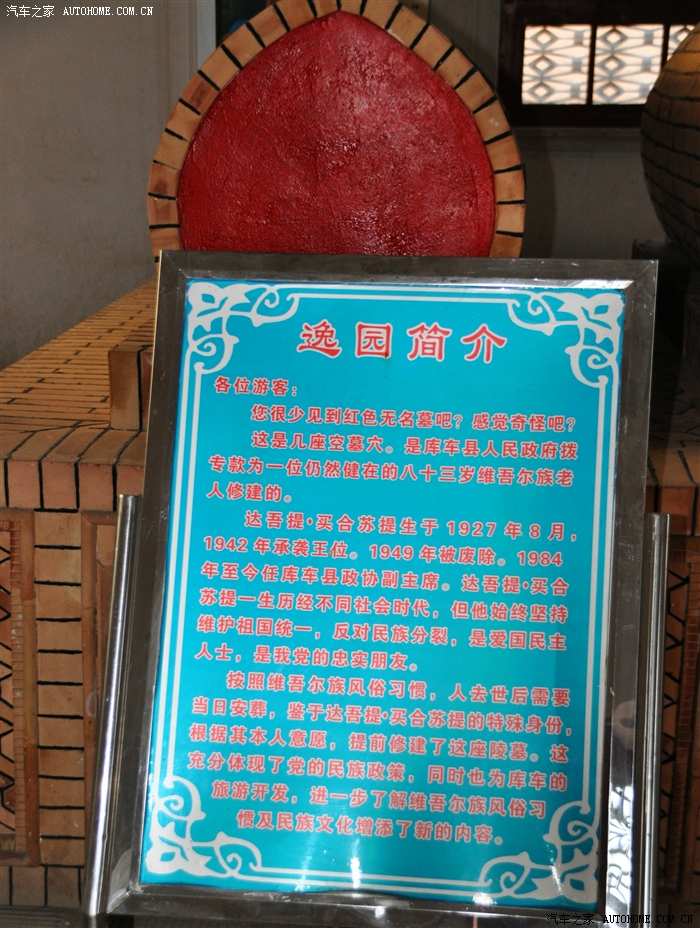 汽车之家 AUTOHOME.COM.CN
逸园简介
各位游客：
您很少见到红色无名墓吧？感觉奇怪吧？
这是几座空墓穴。是库车县人民政府拨
专款为一位仍然健在的八十三岁维吾尔族老
人修建的。
达吾提·买合苏提生于1927年8月，
1942年承袭王位。1949年被废除。1984
年至今任库车县政协副主席。达吾提·买合
苏提一生历经不同社会时代，但他始终坚持
维护祖国统一，反对民族分裂，是爱国民主
人士，是我党的忠实朋友。
按照维吾尔族风俗习惯，人去世后需要
当日安葬，鉴于达吾提·买合苏提的特殊身份，
根据其本人意愿，提前修建了这座陵墓。这
充分体现了党的民族政策，同时也为库车的
旅游开发，进一步了解维吾尔族风俗习
惯及民族文化增添了新的内容。
汽车之家 AUTOHOME.COM.CN